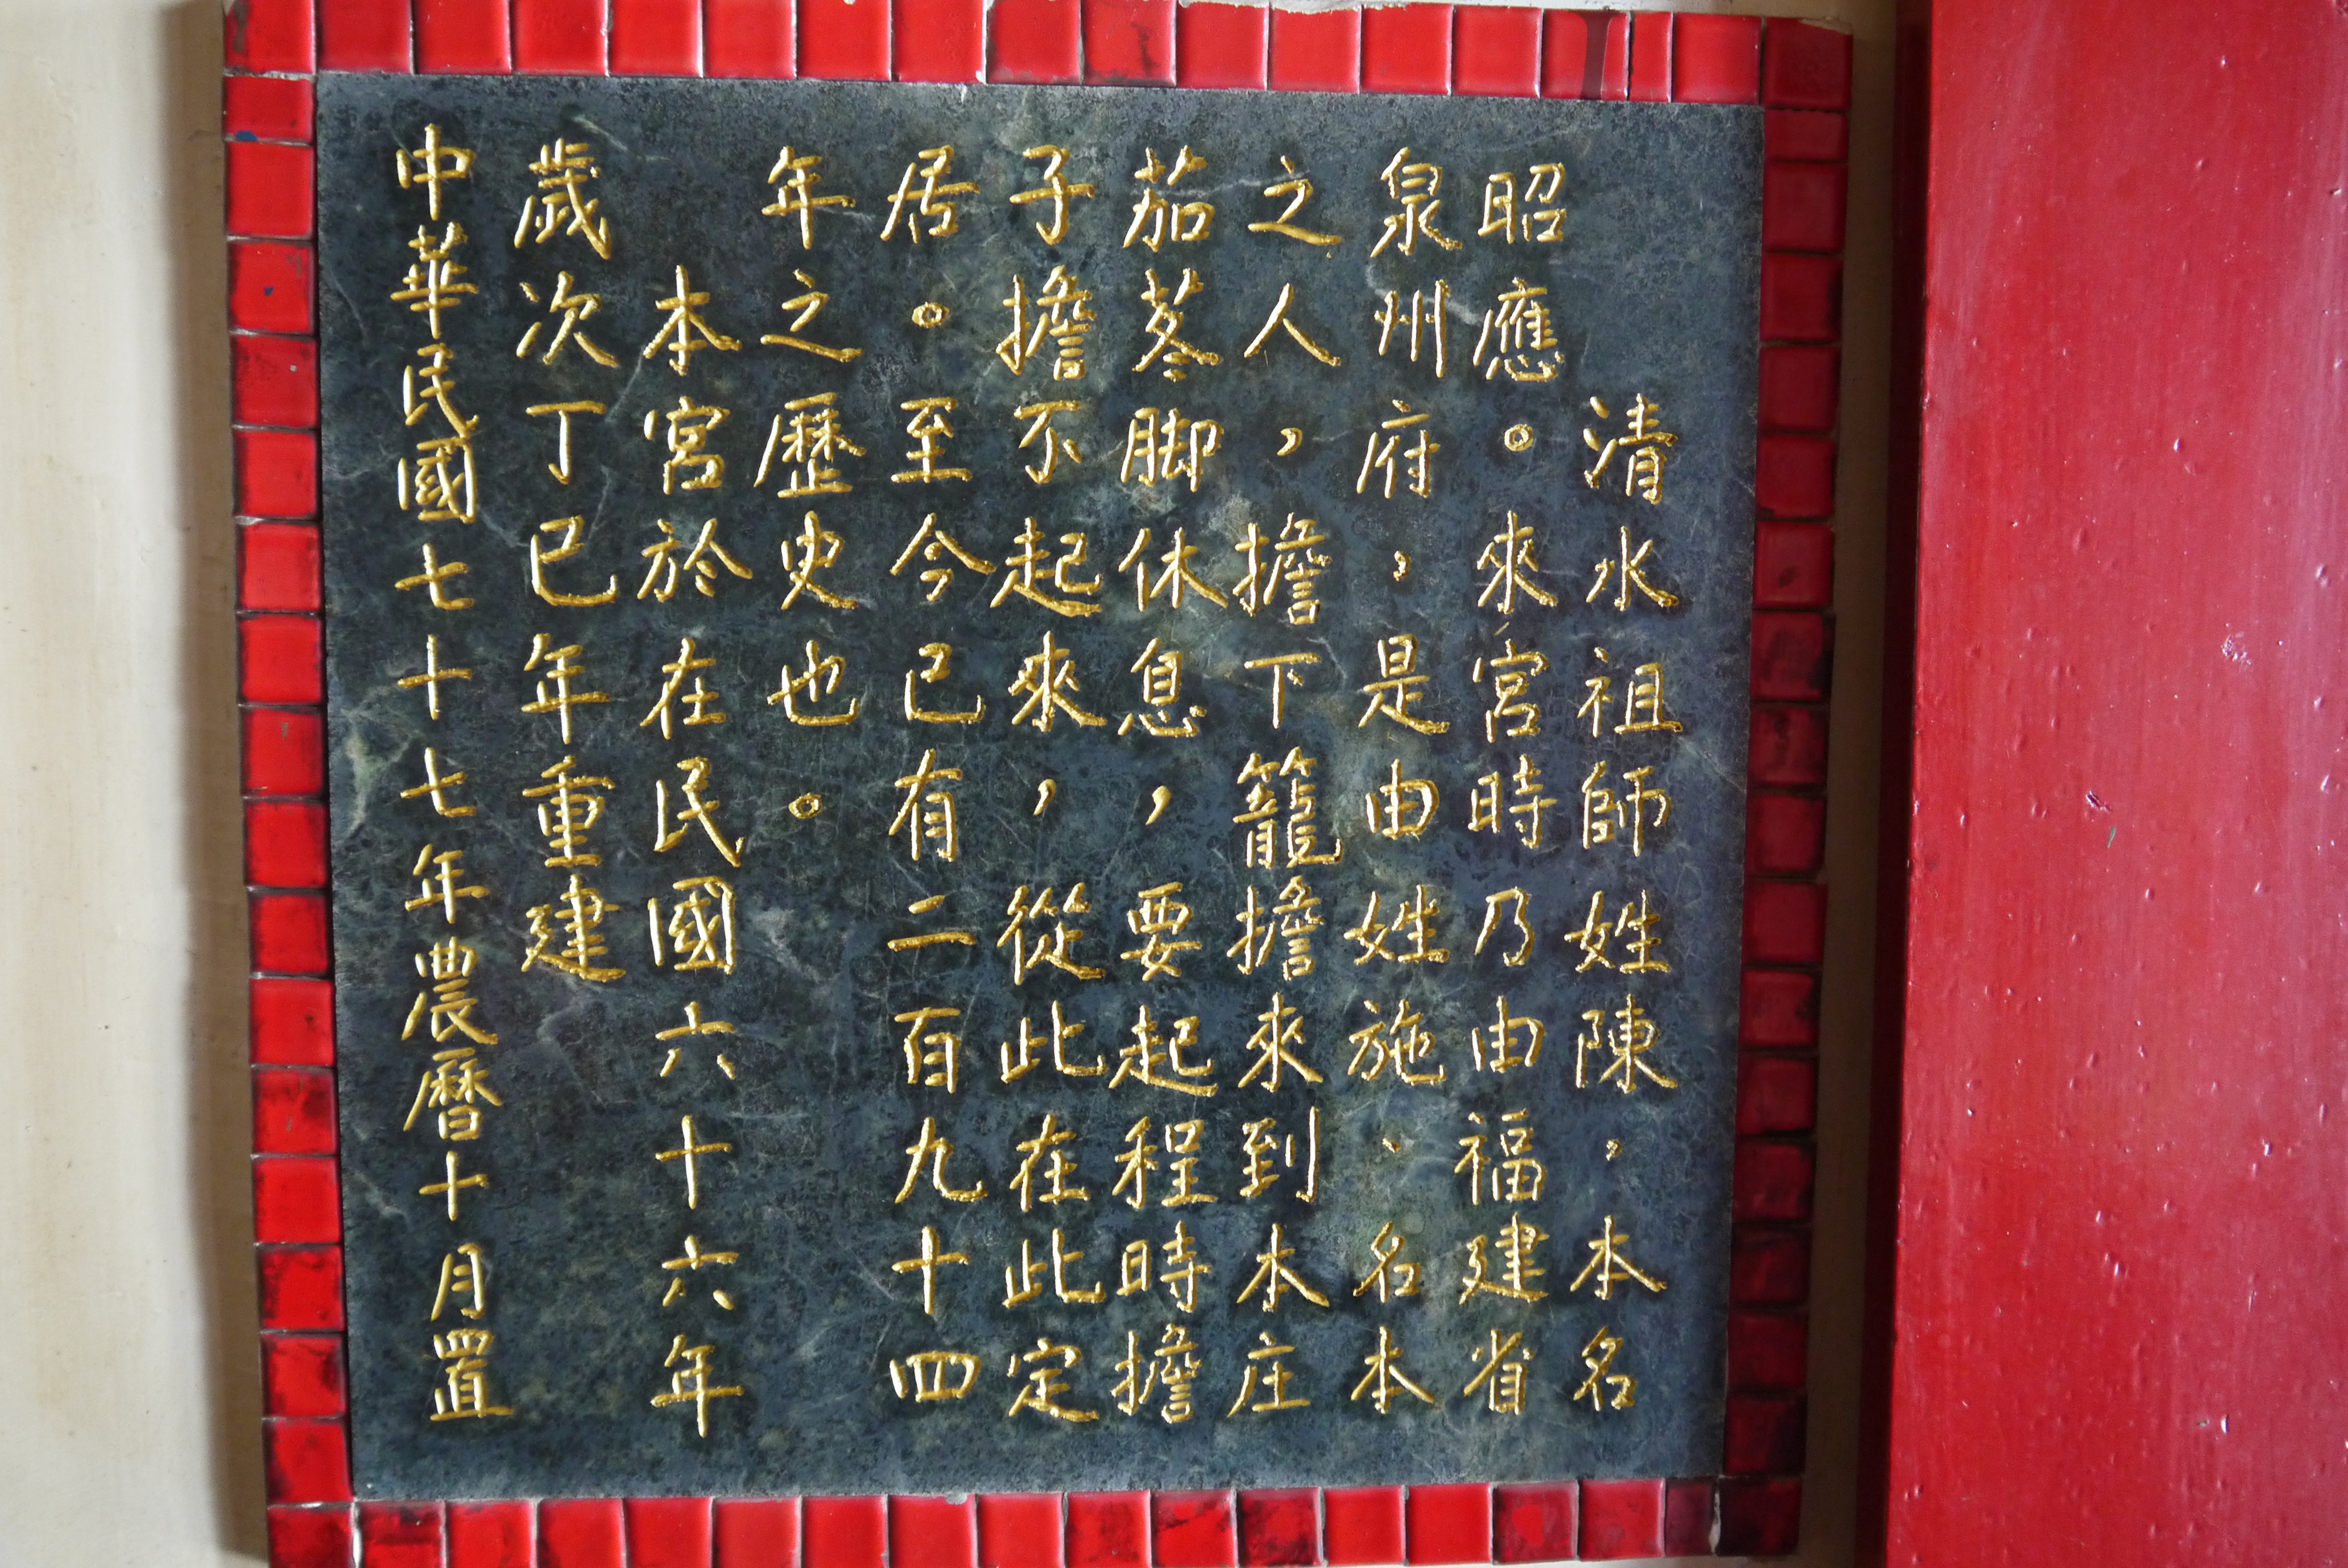 清水祖師姓陳，本名
昭應。來宮時乃由福建省
泉州府，是由姓施、名本
之人，擔下籠擔來到本庄
茄苳脚休息，要起程時擔
子擔不起來，從此在此定
居。至今已有二百九十四
年之歷史也。
本宮於在民國六十六年
歲次丁巳年重建
中華民國七十七年農曆十月置